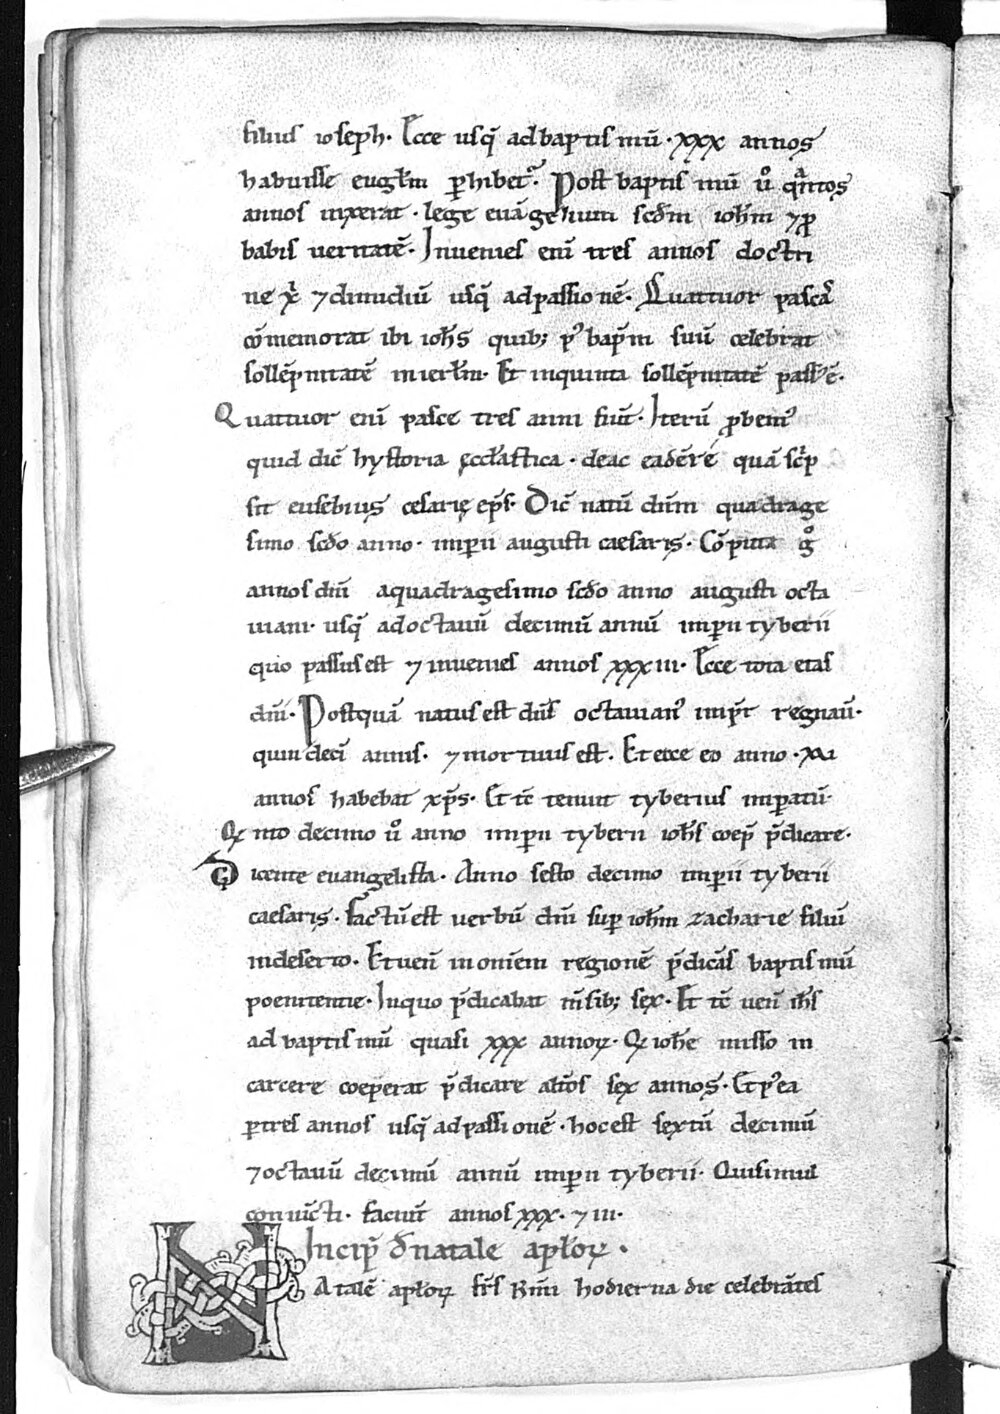 filius ioseph. Ecce usq̄ ad baptismū. xxx annos
habuisse eug̅lm ꝑhibet᷑. Post baptismū ů qͣntos
annos uixerat. lege euāgelium scd̄m ioh̄m ⁊ ꝓ
babis ueritatē. Inuenies eni̅ tres annos doctri
ne xp̄i ⁊ dimidiū usq̄ ad passionē. Quattuor pasca᷑
cōmemorat ibi ioh̄s quib; p᷒ bap̄m suū celebrat
sollēpnitatē in ierl̄m. Et in quinta sollēpnitatē passꝰ ē.
Quattuor eni̅ pasce tres anni fiūt. Iterū ꝓbemꝰ
quid dic̄ hystoria ęccl̄astica. de ac eadē re quā sc̄ͥp
sit eusebius cesarię ep̄s. Dic̄ natū dn̄m quadrage
simo scd̄o anno. imꝑii augusti caesaris. Cōputa g̊
annos dn̄i a quadragesimo scd̄o anno augusti octa
uiani. usq̄ ad octauū decimū annū imꝑii tyberii
quo passus est ⁊ inuenies annos xxxiii. Ecce tota etas
dn̄i. Postquā natus est dn̄s octauianꝰ imꝑr̄ regnau̅.
quindeci̅ annis. ⁊ mortuus est. Et ecce eo anno. xvi
annos habebat xp̄s. Et tc̄ tenuit tyberius imꝑatū.
Qͥnto decimo ů anno imꝑii tyberii ioh̄s coep̄ p̄dicare.
Dicente euangelista. Anno sesto decimo imꝑii tyberii
caesaris. Factū est uerbū dn̄i suꝑ ioh̄m zacharie filiū
in deserto. Et uen̄ in om̄em regionē p̄dicās baptismū
poenitentie. In quo p̄dicabat m̄sib; sex. Et tc̄ uen̄ ih̄s
ad baptismū quasi xxx annoꝝ. Qͥ ioh̄e misso in
carcere coeperat p̄dicare alt̄os sex annos. Et p᷒ea
ꝑ tres annos usq̄ ad passionē. hoc est sextū decimū
⁊ octauū decimū annū imꝑii tyberii. Qui simul
coniūcti. faciūt annos xxx. ⁊ iii.
Incip̄ d̄ natale apl̄oꝝ.
Natalē apl̄oꝝ fr̄s k̄mi hodierna die celebrātes